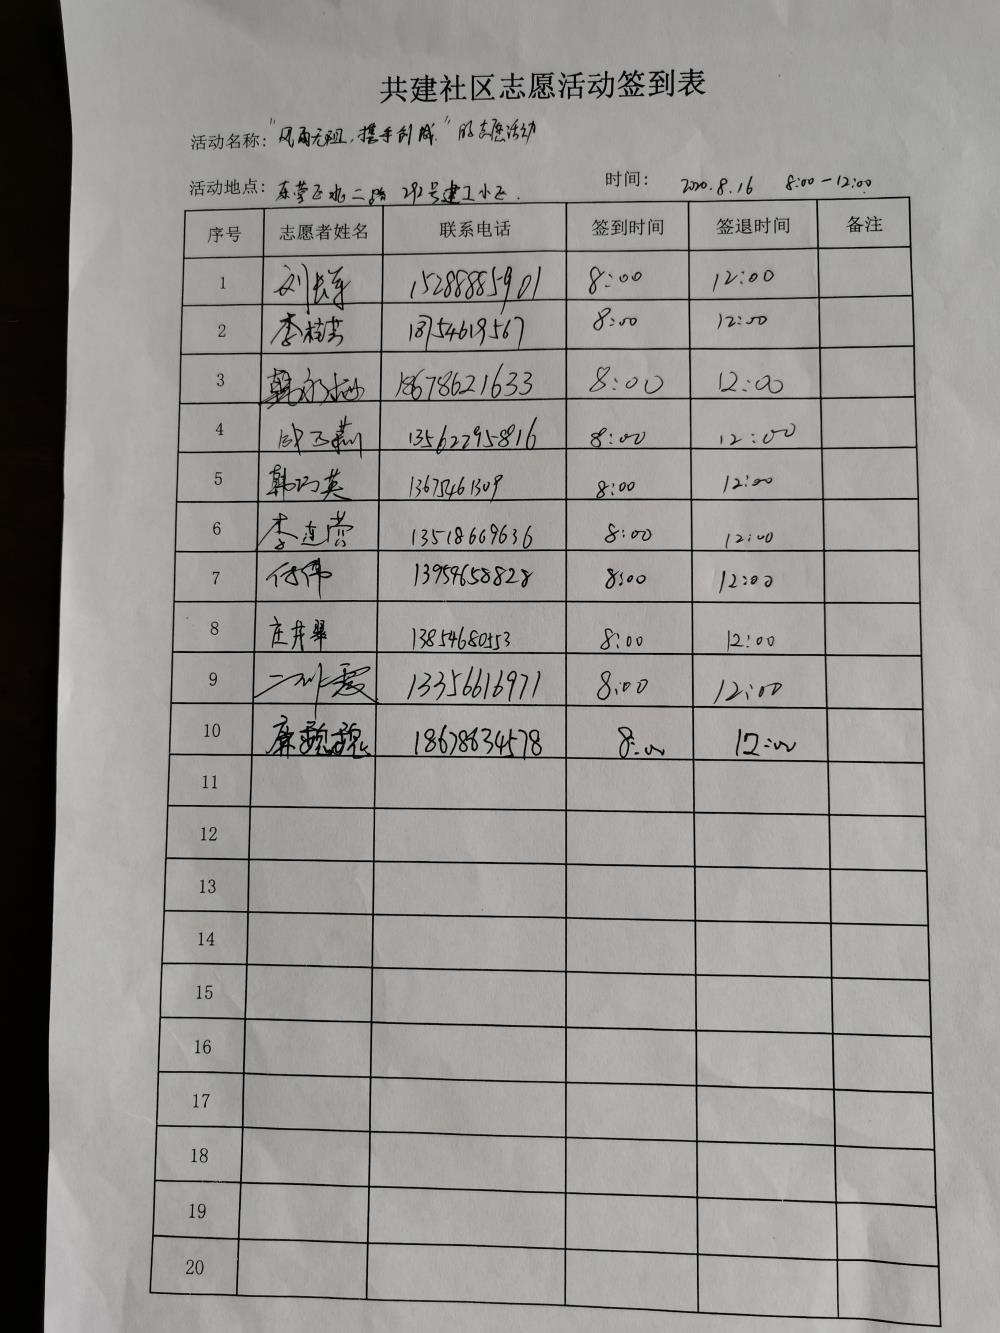 共建社区志愿活动签到表
活动名称：“风雨无阻，携手创城”的志愿活动
活动地点：东营区北二路292号建工小区. 时间： 2020.8.16 8:00-12:00
序号 志愿者姓名 联系电话 签到时间 签退时间 备注
1 刘 15288885901 8:00 12:00
2 李桂芳 18754619567 8:00 12:00
3 韩 18678621633 8:00 12:00
4 13562295816 8:00 12:00
5 韩巧英 13675461309 8:00 12:00
6 李连营 13518669636 8:00 12:00
7 付伟 13954658828 8:00 12:00
8 庄井翠 13854680553 8:00 12:00
9 13356616971 8:00 12:00
10 麻魏魏 18678634578 8:00 12:00
11
12
13
14
15
16
17
18
19
20